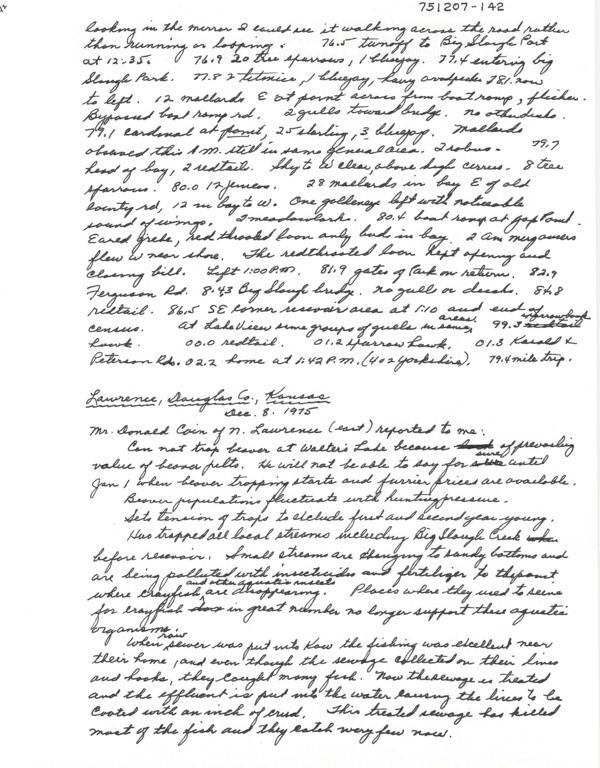 751207-142
looking in the mirror I could see it walking across the road rather
than running or loping. 76.5 turnoff to Big Slough Port
at 12:35. 76.9 20 tree sparrows, 1 bluejay. 77.4 entering big
Slough Park. 77.8 2 titmice, 1 bluejay, hairy woodpecker 78.1 now
to left. 12 mallards E at point across from boat ramp, flicker.
Bypassed boat ramp rd. 2 gulls toward bridge. No other ducks.
79.1 cardinal at point, 25 starling, 3 bluejay. Mallards
observed this A.M. still in same general area. 2 robins. 79.7
head of bay, 2 redtails. Sky to W clear, above high cirrus. 8 tree
sparrows. 80.0 12 juncos. 28 mallards in bay E of old
county rd, 12 in bay to W. One goldeneye left with noticeable
sound of wings. 2 meadowlark. 80.4 boat ramp at Gap Point.
Eared grebe, red throated loon only bird in bay. 2 Am mergansers
flew W near shore. The redthroated loon kept opening and
closing bill. Left 1:00 P.M. 81.9 gates of Park on return. 82.9
Ferguson Rd. 8.43 Big Slough bridge. No gull or ducks. 84.8
redtail. 86.5 SE corner reservoir area at 1:10 and end of
census. At Lakeview same groups of gulls in same areas. 99.3 sparrow hawk
hawk. 00.0 redtail. 01.2 sparrow hawk. 01.3 Kasold &
Peterson Rd. 02.2 home at 1:42 P.M. (402 Yorkshire). 79.4 mile trip.
Lawrence, Douglas Co., Kansas
Dec. 8. 1975
Mr. Donald Coin of N. Lawrence (east) reported to me:
Can not trap beaver at Walter's Lake because of prevailing
value of beaver pelts. He will not be able to say for sure until
Jan 1 when beaver trapping starts and furrier prices are available.
Beaver populations fluctuate with hunting pressure.
Sets tension of traps to exclude first and second year young.
Has trapped all local streams including Big Slough Creek
before reservoir. Small streams are changing to sandy bottoms and
are being polluted with insecticides and fertilizer to the point
where crayfish and other aquatic insects are disappearing. Places where they used to seine
for crayfish in great number no longer support these aquatic
organisms.
When raw sewer was put into Kaw the fishing was excellent near
their home, and even though the sewage collected on their lines
and hooks, they caught many fish. Now the sewage is treated
and the effluent is put into the water causing the lines to be
coated with an inch of crud. This treated sewage has killed
most of the fish and they catch very few now.